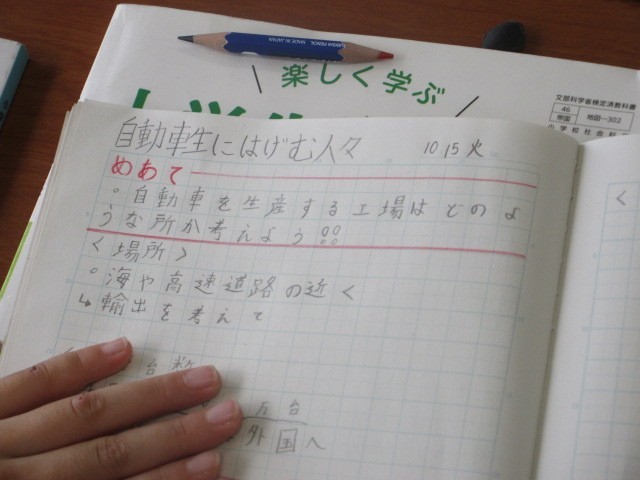 楽しく学ぶ
文部科学省検定済教科書
46
帝国
地図―302
自動車生にはげむ人々 10 15 火
めあて
。自動車を生産する工場はどのよ
うな所か考えよう!!
〈場所〉
。海や高速道路の近く
↳輸出を考えて
台数
万台
外国へ
〈